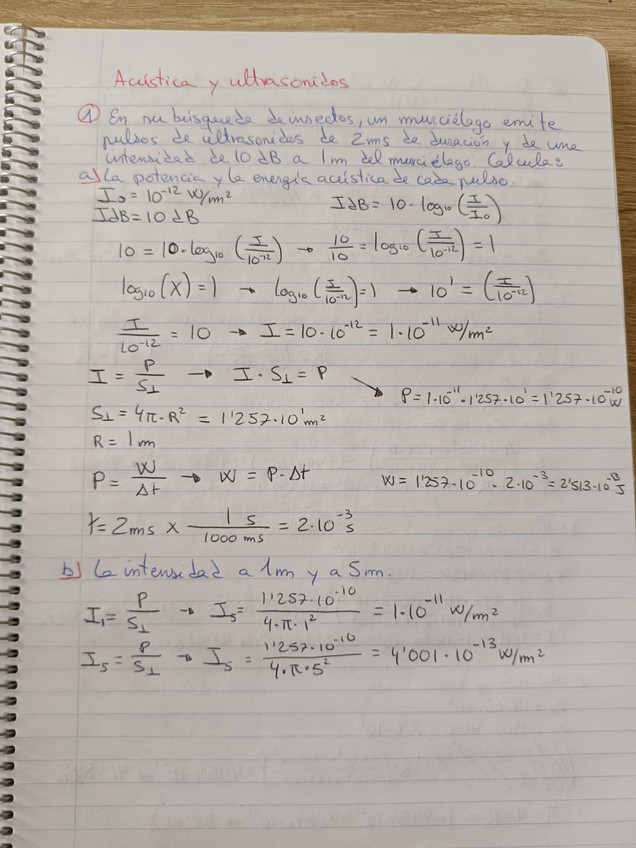 Acústica y ultrasonidos
① En su búsqueda de insectos, un murciélago emite
pulsos de ultrasonidos de 2ms de duración y de una
intensidad de 10 dB a 1m del murciélago. Calcula:
a) La potencia y la energía acústica de cada pulso.
I₀ = 10⁻¹² W/m² IdB = 10 · log₁₀ (I/I₀)
IdB = 10 dB
10 = 10 · log₁₀ (I/10⁻¹²) → 10/10 = log₁₀ (I/10⁻¹²) = 1
log₁₀ (X) = 1 → log₁₀ (I/10⁻¹²) = 1 → 10¹ = (I/10⁻¹²)
I/10⁻¹² = 10 → I = 10 · 10⁻¹² = 1 · 10⁻¹¹ W/m²
I = P/S⊥ → I · S⊥ = P ↘ P = 1 · 10⁻¹¹ · 1'257 · 10¹ = 1'257 · 10⁻¹⁰ W
S⊥ = 4π · R² = 1'257 · 10¹ m²
R = 1m
P = W/Δt → W = P · Δt W = 1'257 · 10⁻¹⁰ · 2 · 10⁻³ = 2'513 · 10⁻¹³ J
t = 2ms × 1 s/1000 ms = 2 · 10⁻³ s
b) La intensidad a 1m y a 5m.
I₁ = P/S⊥ → I₅ = 1'257 · 10⁻¹⁰/4 · π · 1² = 1 · 10⁻¹¹ W/m²
I₅ = P/S⊥ → I₅ = 1'257 · 10⁻¹⁰/4 · π · 5² = 4'001 · 10⁻¹³ W/m²